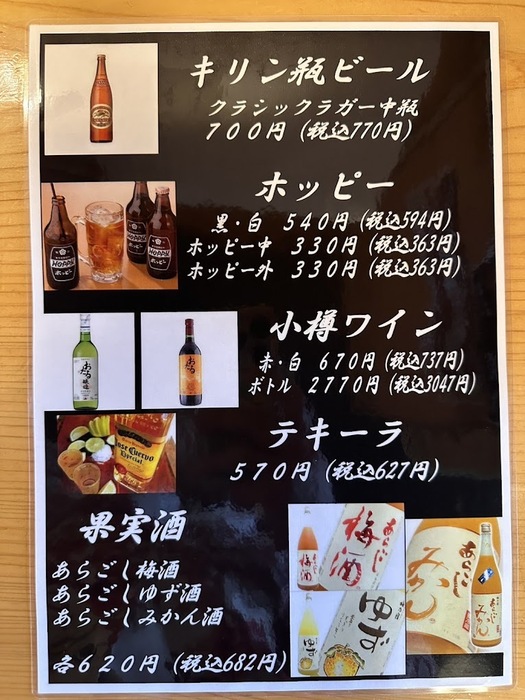 キリン瓶ビール
クラシックラガー中瓶
700円(税込770円)
ホッピー
黒・白 540円(税込594円)
ホッピー中 330円(税込363円)
ホッピー外 330円(税込363円)
HOPPY
ホッピー
HOPPY
ホッピー
小樽ワイン
赤・白 670円(税込737円)
ボトル 2770円(税込3047円)
おたる
おたる
テキーラ
570円(税込627円)
Jose Cuervo
Especial
果実酒
あらごし梅酒
あらごしゆず酒
あらごしみかん酒
各620円(税込682円)
あらごし
梅酒
ゆず
あらごし
みかん